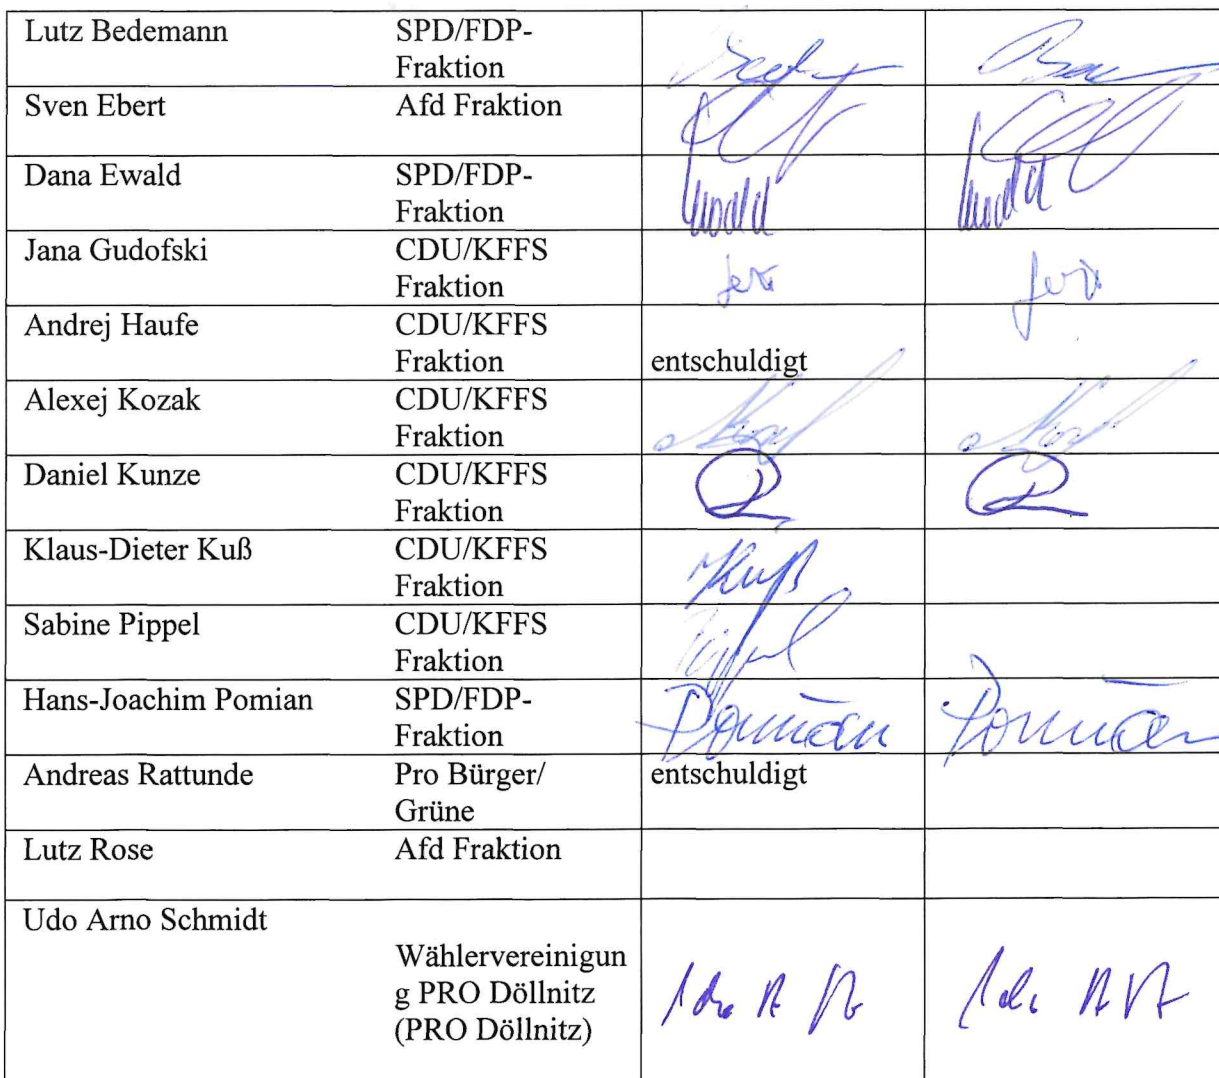 Lutz Bedemann SPD/FDP-
Fraktion
Sven Ebert Afd Fraktion
Dana Ewald SPD/FDP-
Fraktion
Ewald
Jana Gudofski CDU/KFFS
Fraktion
Andrej Haufe CDU/KFFS
Fraktion entschuldigt
Alexej Kozak CDU/KFFS
Fraktion
Daniel Kunze CDU/KFFS
Fraktion
Klaus-Dieter Kuß CDU/KFFS
Fraktion Kuß
Sabine Pippel CDU/KFFS
Fraktion Pippel
Hans-Joachim Pomian SPD/FDP-
Fraktion Pomian Pomian
Andreas Rattunde Pro Bürger/ entschuldigt
Grüne
Lutz Rose Afd Fraktion
Udo Arno Schmidt
Wählervereinigun
g PRO Döllnitz
(PRO Döllnitz)